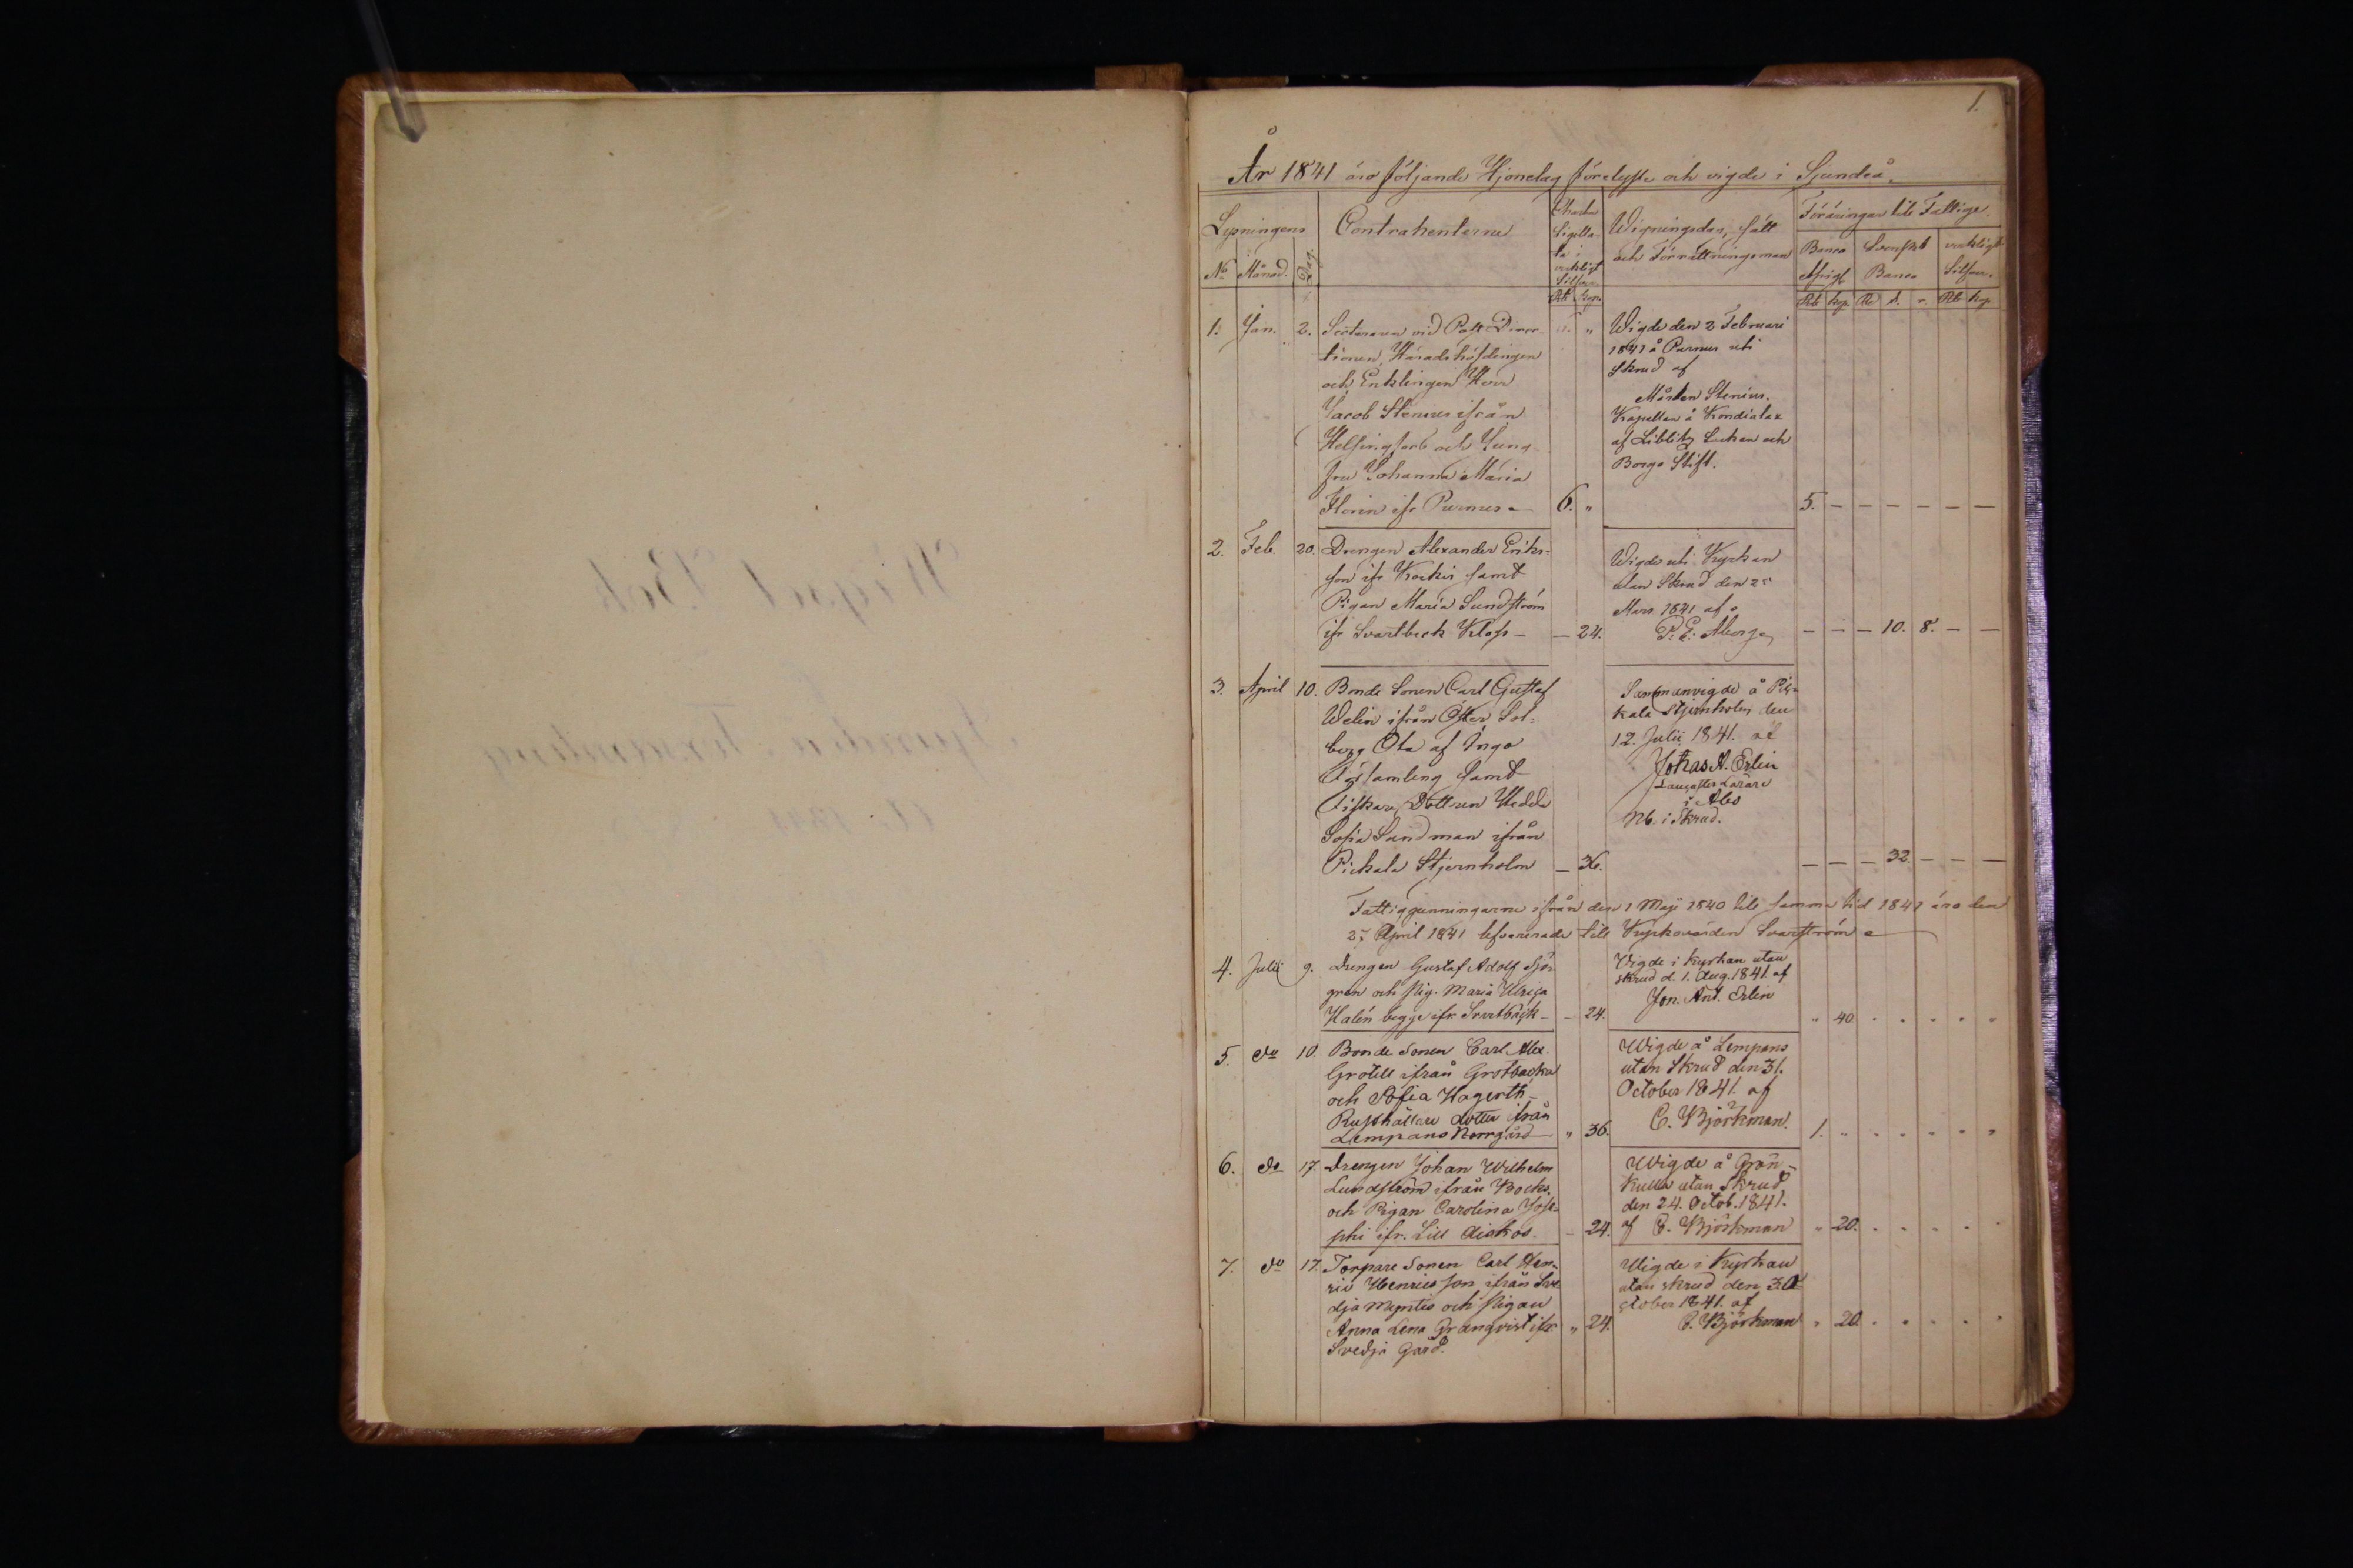 1.
År 1841 äro följande Hjonelag förelyste och vigde i Sjundeå.
Lysningens
Contrahenterne
Charta
Sigilla-
ta i
verkligt
Silfver.
Wigningsdag, sätt
och Förrättningsman
Föräringar till Fattige.
Banco
Assign
Svenskt
Banco
verkligt
Silfver.
No Månad. Dag.
Rub. kop. Rub kop. Rd s. r. Rub kop
1. Jan. 2. Secteraren vid Post Direc-
tionen, Häradshöfdingen
och Enklingen Herr
Jacob Stenius ifrån
Helsingfors och Jung
fru Johanna Maria
Florin ifr Purnus 6. "
Wigde den 2 Februari
1841 å Purnus uti
Skrud af
Mårten Stenius.
Kapellan å Kondialax
af Liblitz Sochen och
Borgo Stift.
5. – – – – – –
2. Feb. 20. Drengen Alexander Eriks-
son ifr Kockis samt
Pigan Maria Sundström
ifr Svartbeck Klass – – 24.
Wigde uti Kyrkan
utan Skrud den 25
Mars 1841 af
– – – 10. 8. – –
3. April 10. Bonde Sonen Carl Gustaf
Welin ifrån Öster Sol-
berg Ola af Ingo
Församling samt
Fiskare Dottren Hedda
Sofia Sandman ifrån
Pickala Stjernholm – 36.
Sammanvigde å Pic-
kala Stjernholm den
12. Julii 1841. af
Johas A. Erlin
Lärare
i Åbo
Nb. i Skrud.
– – – 32. – – –
ifrån den 1 Maji 1840 till samma tid 1841 äro den
27 April 1841 lefvererade till Kyrkovärden Svarström
4. Julii 9. Drengen Gustaf Adolf Sjö-
gren och Pig. Maria Ulrica
Halén begge ifr Svartbäck – – 24.
Vigde i kyrkan utan
skrud d. 1. Aug. 1841 af
Jon. Ant. Erlin
" 40 " " " " "
5. do 10. Bonde Sonen Carl Alex.
Grotell ifrån Grotbacka
och Sofia Hagerth,
Rusthållare dotter ifrån
Lempans Norrgård " 36.
Wigde å Lempans
utan Skrud den 31.
October 1841. af
C. Björkman.
1. " " " " " "
6. do 17. Drengen Johan Wilhelm
Lundström ifrån Bocks,
och Pigan Carolina Jose-
phi ifr. Lill Aiskos. – 24.
Wigde å Grön-
kulla utan Skrud
den 24. Octob. 1841.
af C. Björkman
" 20. " " " " "
7. do 17. Torpare Sonen Carl Hen-
ric Henricsson ifrån Sve
dja och Pigan
Anna Lena Granqvist ifr " 24.
Svedja Gård.
Wigde i Kyrkan
utan skrud den 30
october 1841. af
C. Björkman
" 20. " " " " "